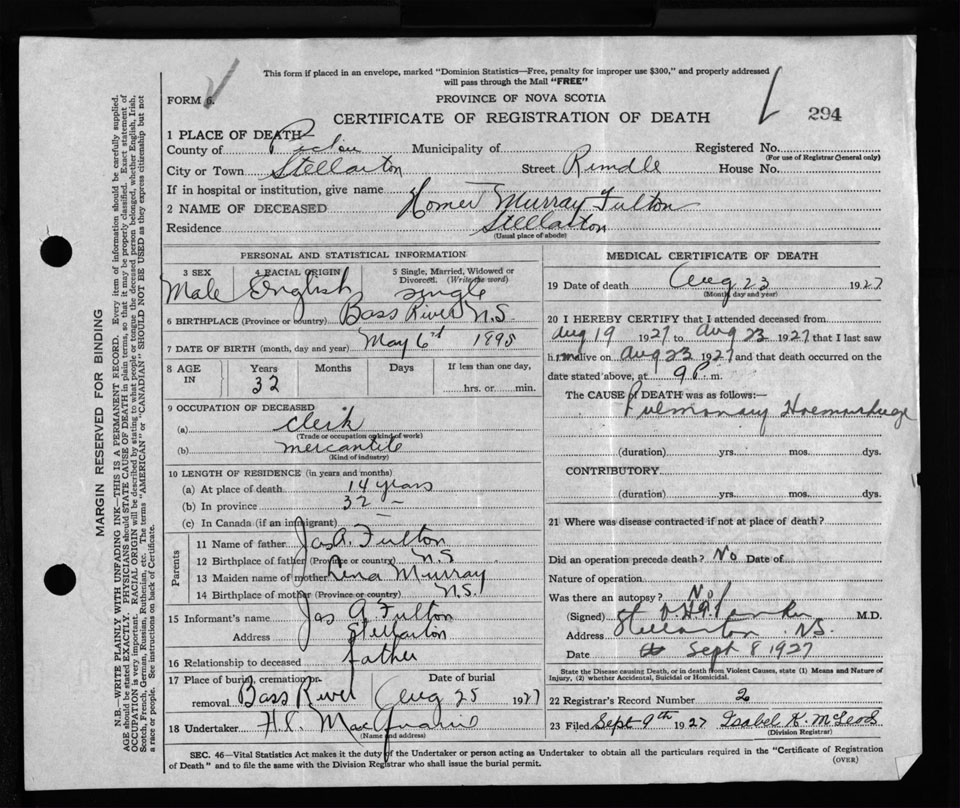 This form if placed in an envelope, marked "Dominion Statistics—Free, penalty for improper use $300," and properly addressed
will pass through the Mail "FREE"
FORM 6.
PROVINCE OF NOVA SCOTIA
CERTIFICATE OF REGISTRATION OF DEATH
294
1 PLACE OF DEATH—
County of Pictou Municipality of Registered No.
(For use of Registrar General only)
City or Town Stellarton Street Rundle House No.
If in hospital or institution, give name
2 NAME OF DECEASED Homer Murray Fulton
Residence Stellarton
(Usual place of abode)
PERSONAL AND STATISTICAL INFORMATION
3 SEX 4 RACIAL ORIGIN 5 Single, Married, Widowed or
Divorced. (Write the word)
Male English single
6 BIRTHPLACE (Province or country) Bass River N.S.
7 DATE OF BIRTH (month, day and year) May 6th 1895
8 AGE IN Years Months Days If less than one day,
32 hrs. or min.
9 OCCUPATION OF DECEASED
(a) Clerk
(Trade or occupation or kind of work)
(b) mercantile
(Kind of industry)
10 LENGTH OF RESIDENCE (in years and months)
(a) At place of death 14 years
(b) In province 32 —
(c) In Canada (if an immigrant)
Parents
11 Name of father Jas A. Fulton
12 Birthplace of father (Province or country) N.S
13 Maiden name of mother Lena Murray
14 Birthplace of mother (Province or country) N.S.
15 Informant's name Jas A Fulton
Address Stellarton
16 Relationship to deceased father
17 Place of burial, cremation or Date of burial
removal Bass River Aug 25 1927
18 Undertaker H.C.
(Name and address)
MEDICAL CERTIFICATE OF DEATH
19 Date of death Aug 23 1927
(Month, day and year)
20 I HEREBY CERTIFY that I attended deceased from
Aug 19 1927 to Aug 23 1927 that I last saw
him alive on Aug 23 1927 and that death occurred on the
date stated above, at 9 P. m.
The CAUSE of DEATH was as follows:—
Pulmonary Haemorrhage
(duration) yrs. mos. dys.
CONTRIBUTORY
(duration) yrs. mos. dys.
21 Where was disease contracted if not at place of death?
Did an operation precede death? No Date of
Nature of operation
Was there an autopsy? No
(Signed) M.D.
Address Stellarton N.S.
Date Sept 8 1927
State the Disease causing Death, or in death from Violent Causes, state (1) Means and Nature of
Injury, (2) whether Accidental, Suicidal or Homicidal.
22 Registrar's Record Number 2
23 Filed Sept 9th 1927 Isabel K. McLeod
(Division Registrar)
SEC. 46—Vital Statistics Act makes it the duty of the Undertaker or person acting as Undertaker to obtain all the particulars required in the "Certificate of Registration
of Death" and to file the same with the Division Registrar who shall issue the burial permit.
(OVER)
MARGIN RESERVED FOR BINDING
N.B.—WRITE PLAINLY WITH UNFADING INK—THIS IS A PERMANENT RECORD. Every item of information should be carefully supplied.
AGE should be stated EXACTLY. PHYSICIANS should STATE CAUSE OF DEATH in plain terms, so that it may be properly classified. Exact statement of
OCCUPATION is very important. RACIAL ORIGIN will be discovered by stating to what people or tongue the deceased person belonged, whether English, Irish,
Scotch, French, German, Russian, Ruthenian, etc. The terms "AMERICAN" or "CANADIAN" SHOULD NOT BE USED as they express citizenship but not
a race or people. See instructions on back of Certificate.